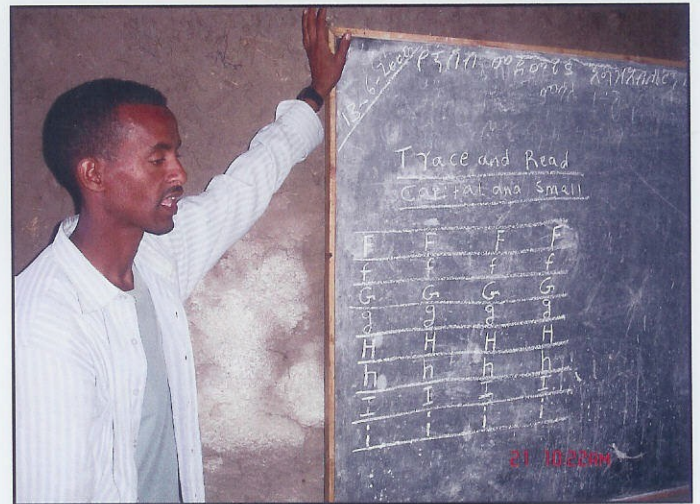 13-6-2000
Trace and Read
Capital and Small
F F F F
f f f f
G G G G
g g g g
H H H H
h h h h
I I I I
i i i i
21 10:22AM